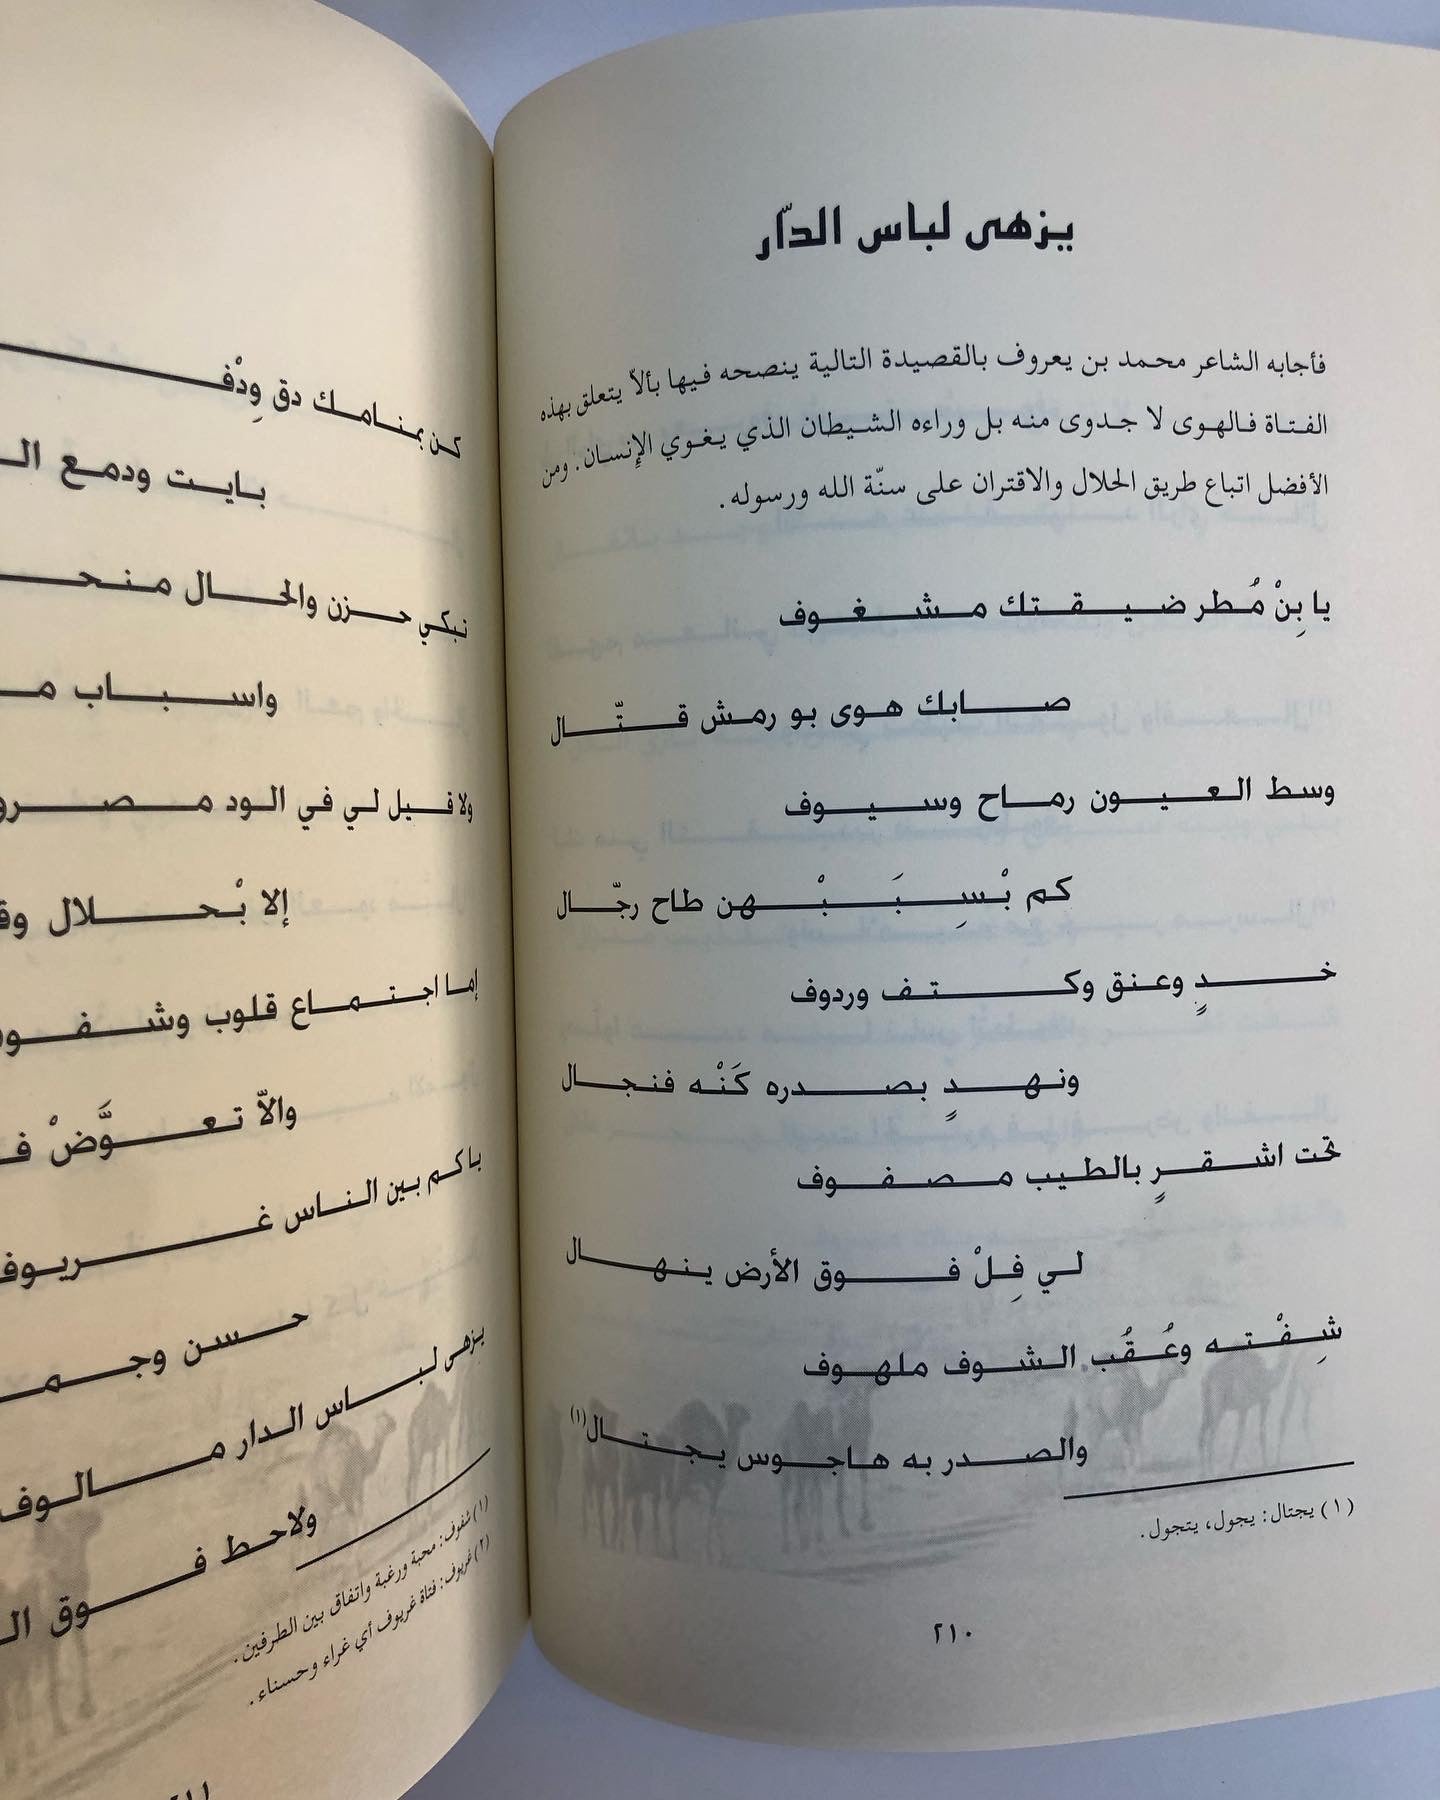 يزهى لباس الدّار
فأجابه الشاعر محمد بن يعروف بالقصيدة التالية ينصحه فيها بألاّ يتعلق بهذه
الفتاة فالهوى لا جدوى منه بل وراءه الشيطان الذي يغوي الإنسان. ومن
الأفضل اتباع طريق الحلال والاقتران على سنّة الله ورسوله.
يا بِنْ مُطر ضيقتك مشغوف
صابك هوى بو رمش قتّال
وسط العيون رماح وسيوف
كم بْسِبَبْهن طاح رجّال
خدٍ وعنق وكتف وردوف
ونهدٍ بصدره كَنْه فنجال
تحت اشقرٍ بالطيب مصفوف
لي فِلْ فوق الأرض ينهال
شِفْته وعُقُب الشوف ملهوف
والصدر به هاجوس يجتال(١)
(١) يجتال: يجول، يتجول.
٢١٠
كن بمنامك دق وِدْف
بايت ودمع
نبكي حزن والحال
واسباب
ولا قبل لي في الود
إلا بْحلال
إما اجتماع قلوب
والاّ تعوَّضْ
باكم بين الناس غريوف
حسن
يزهى لباس الدار مالوف
ولاحط فوق
(١) شفوف: محبة ورغبة واتفاق بين الطرفين.
(٢) غريوف: فتاة غريوف أي غراء وحسناء.